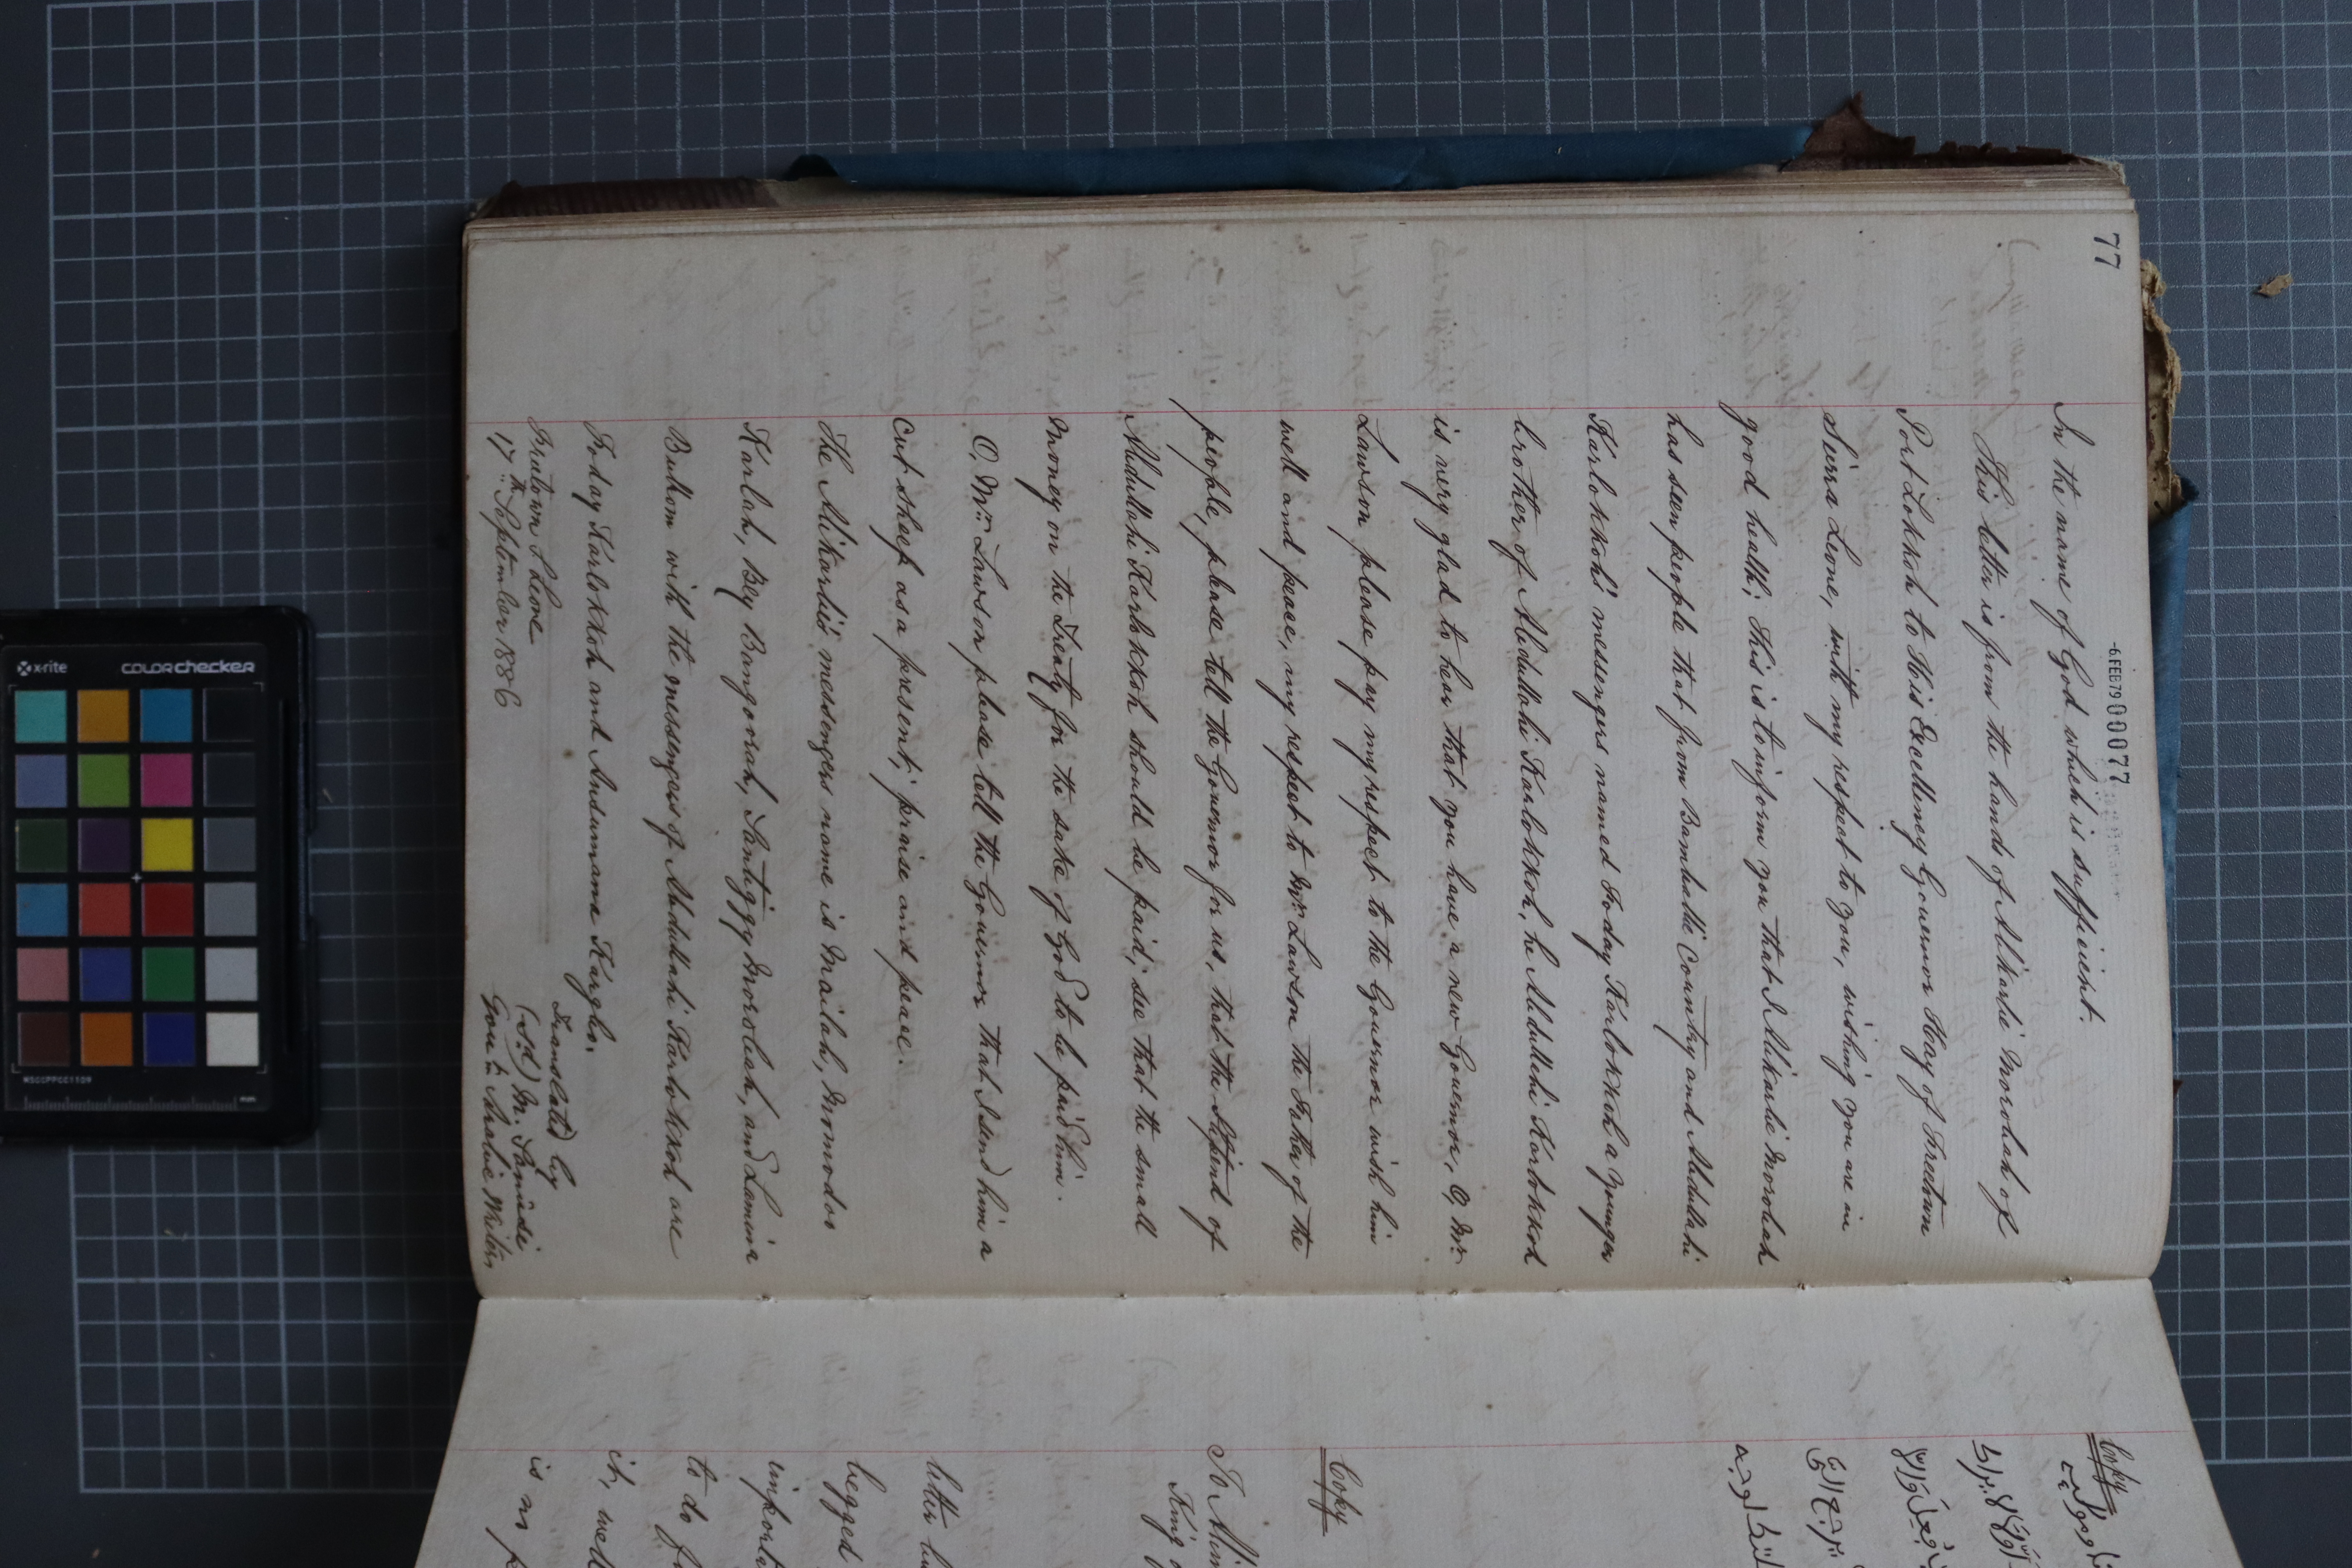 77
-6.FEB79 000077
In the name of God which is sufficient.
This letter is from the hands of Alikarlie Morobah of
Port Lokkoh to His Excellency Governor Hay of Freetown
Sierra Leone, with my respect to you, wishing you are in
good health; this is to inform you that I Alikarlie Morobah
has seen people that from Bambatte Country and Abdullahi
Karlokkoh's messengers named Foday Karlokkoh a younger
brother of Abdullahi Karlokkoh, he Abdullahi Karlokkoh
is very glad to hear that you have a new Governor, O, Mr.
Lawson please pay my respect to the Governor wish him
well and peace, my respect to Mr. Lawson the Father of the
people, please tell the Governor for us, that the Stipend of
Abdullahi Karlokkoh should be paid, see that the small
money on the Treaty for the sake of God to be paid him.
O, Mr. Lawson please tell the Governor that I send him a
cut sheep as a present; praise and peace.
The Alikarlie's messengers name is Mailah, Momodoo
Karlah, Bey Bangoorah, Santiggy Morobah, and Lamina
Bullom with the messengers of Abdullahi Karlokkoh are
Foday Karlokkoh and Ansumana Kargbo.
Translated by
Freetown S Leone
(s'd) M. Sanusi
17th September 1886
Gov't Arabic Writer
Copy
Copy
To Alim
King
letter
begged
importa
to do
it, well
is no